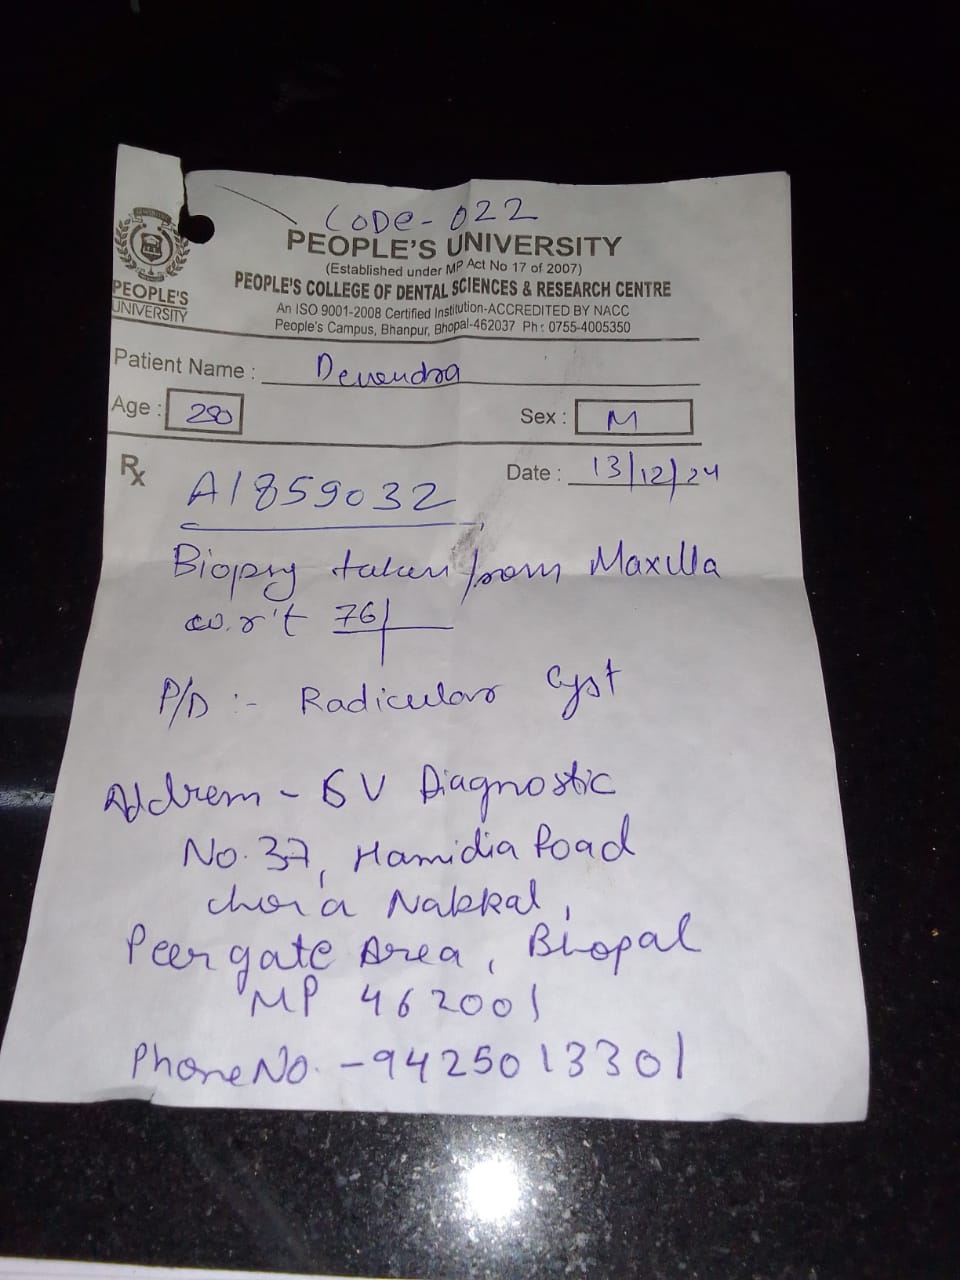 CODE-022
PEOPLE'S UNIVERSITY
(Established under MP Act No 17 of 2007)
PEOPLE'S COLLEGE OF DENTAL SCIENCES & RESEARCH CENTRE
An ISO 9001-2008 Certified Institution-ACCREDITED BY NACC
People's Campus, Bhanpur, Bhopal-462037 Ph: 0755-4005350
PEOPLE'S
UNIVERSITY
Patient Name : Devendra
Age : Sex : M
Rx Date : 13/12/24
A1859032
Biopsy taken from Maxilla
w.r't 76
P/D :- Radicular Cyst
Address - Diagnostic
No. 37, Hamidia Road
Nakkal,
Peer gate Area, Bhopal
MP 462001
Phone No. - 9425013301